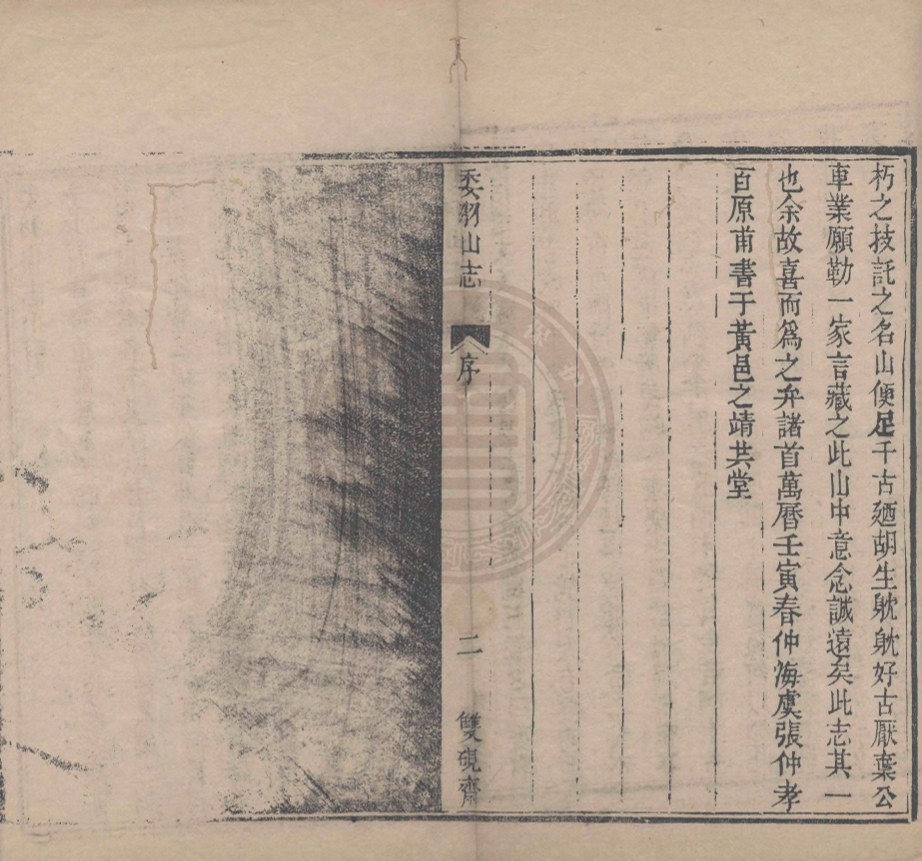 朽之技託之名山便足千古廼胡生躭躭好古厭棄公
車業願勒一家言藏之此山中意念誠遠矣此志其一
也余故喜而爲之弁諸首萬曆壬寅春仲海虞張仲孝
百原甫書于黃邑之靖共堂
委羽山志 序 二 雙硯齋